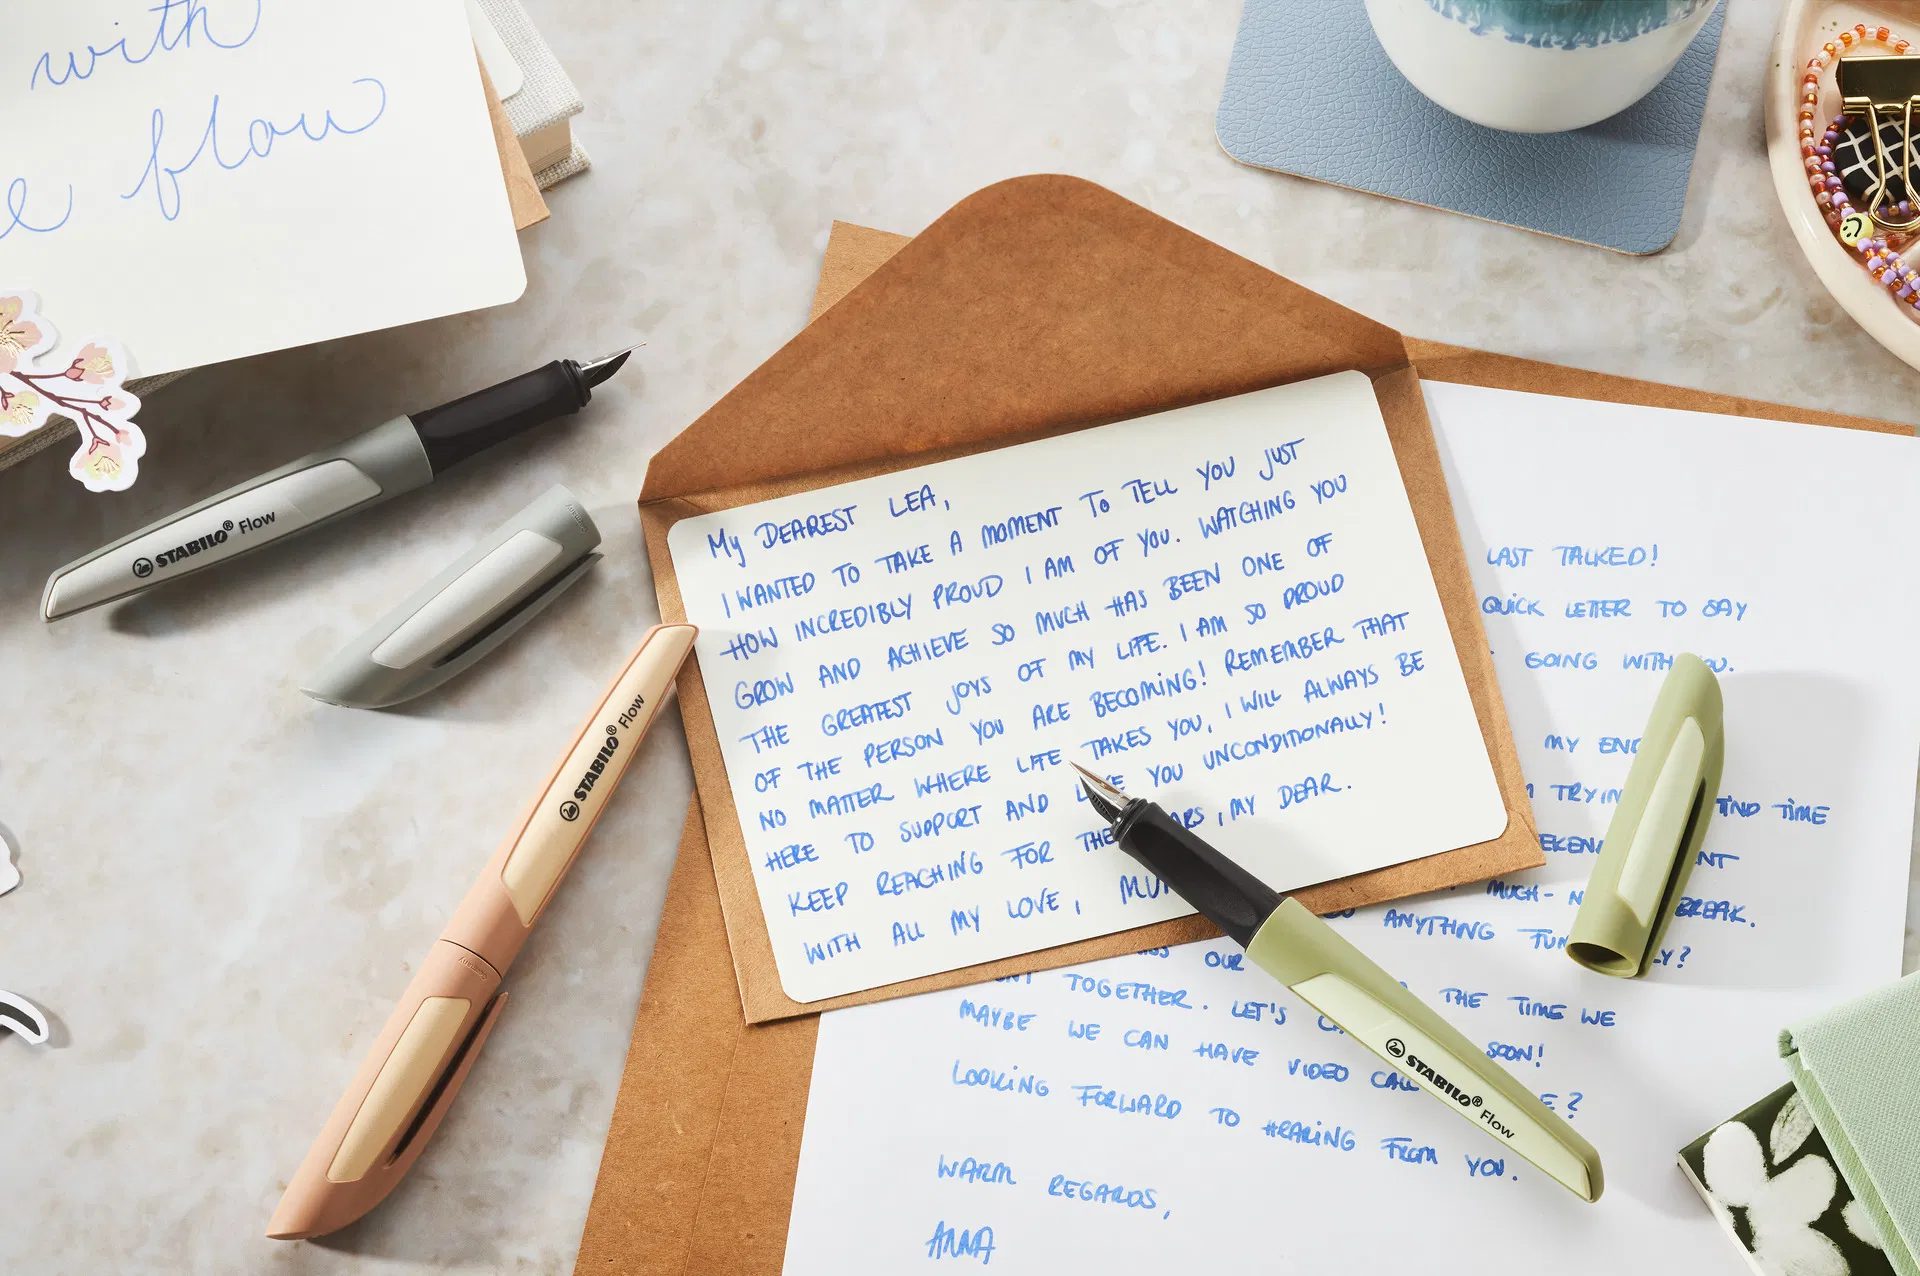 with
flow
STABILO® Flow
STABILO® Flow
My DEAREST LEA,
I WANTED TO TAKE A MOMENT TO TELL YOU JUST
HOW INCREDIBLY PROUD I AM OF YOU. WATCHING YOU
GROW AND ACHIEVE SO MUCH HAS BEEN ONE OF
THE GREATEST JOYS OF MY LIFE. I AM SO PROUD
OF THE PERSON YOU ARE BECOMING! REMEMBER THAT
NO MATTER WHERE LIFE TAKES YOU, I WILL ALWAYS BE
HERE TO SUPPORT AND YOU UNCONDITIONALLY!
KEEP REACHING FOR , MY DEAR.
WITH ALL MY LOVE,
LAST TALKED!
QUICK LETTER TO SAY
GOING WITH
MY
TIME
MUCH- BREAK.
ANYTHING
OUR
TOGETHER. LET'S THE TIME WE
MAYBE WE CAN HAVE VIDEO CALL SOON!
LOOKING FORWARD TO HEARING FROM YOU.
WARM REGARDS,
ANNA
STABILO® Flow